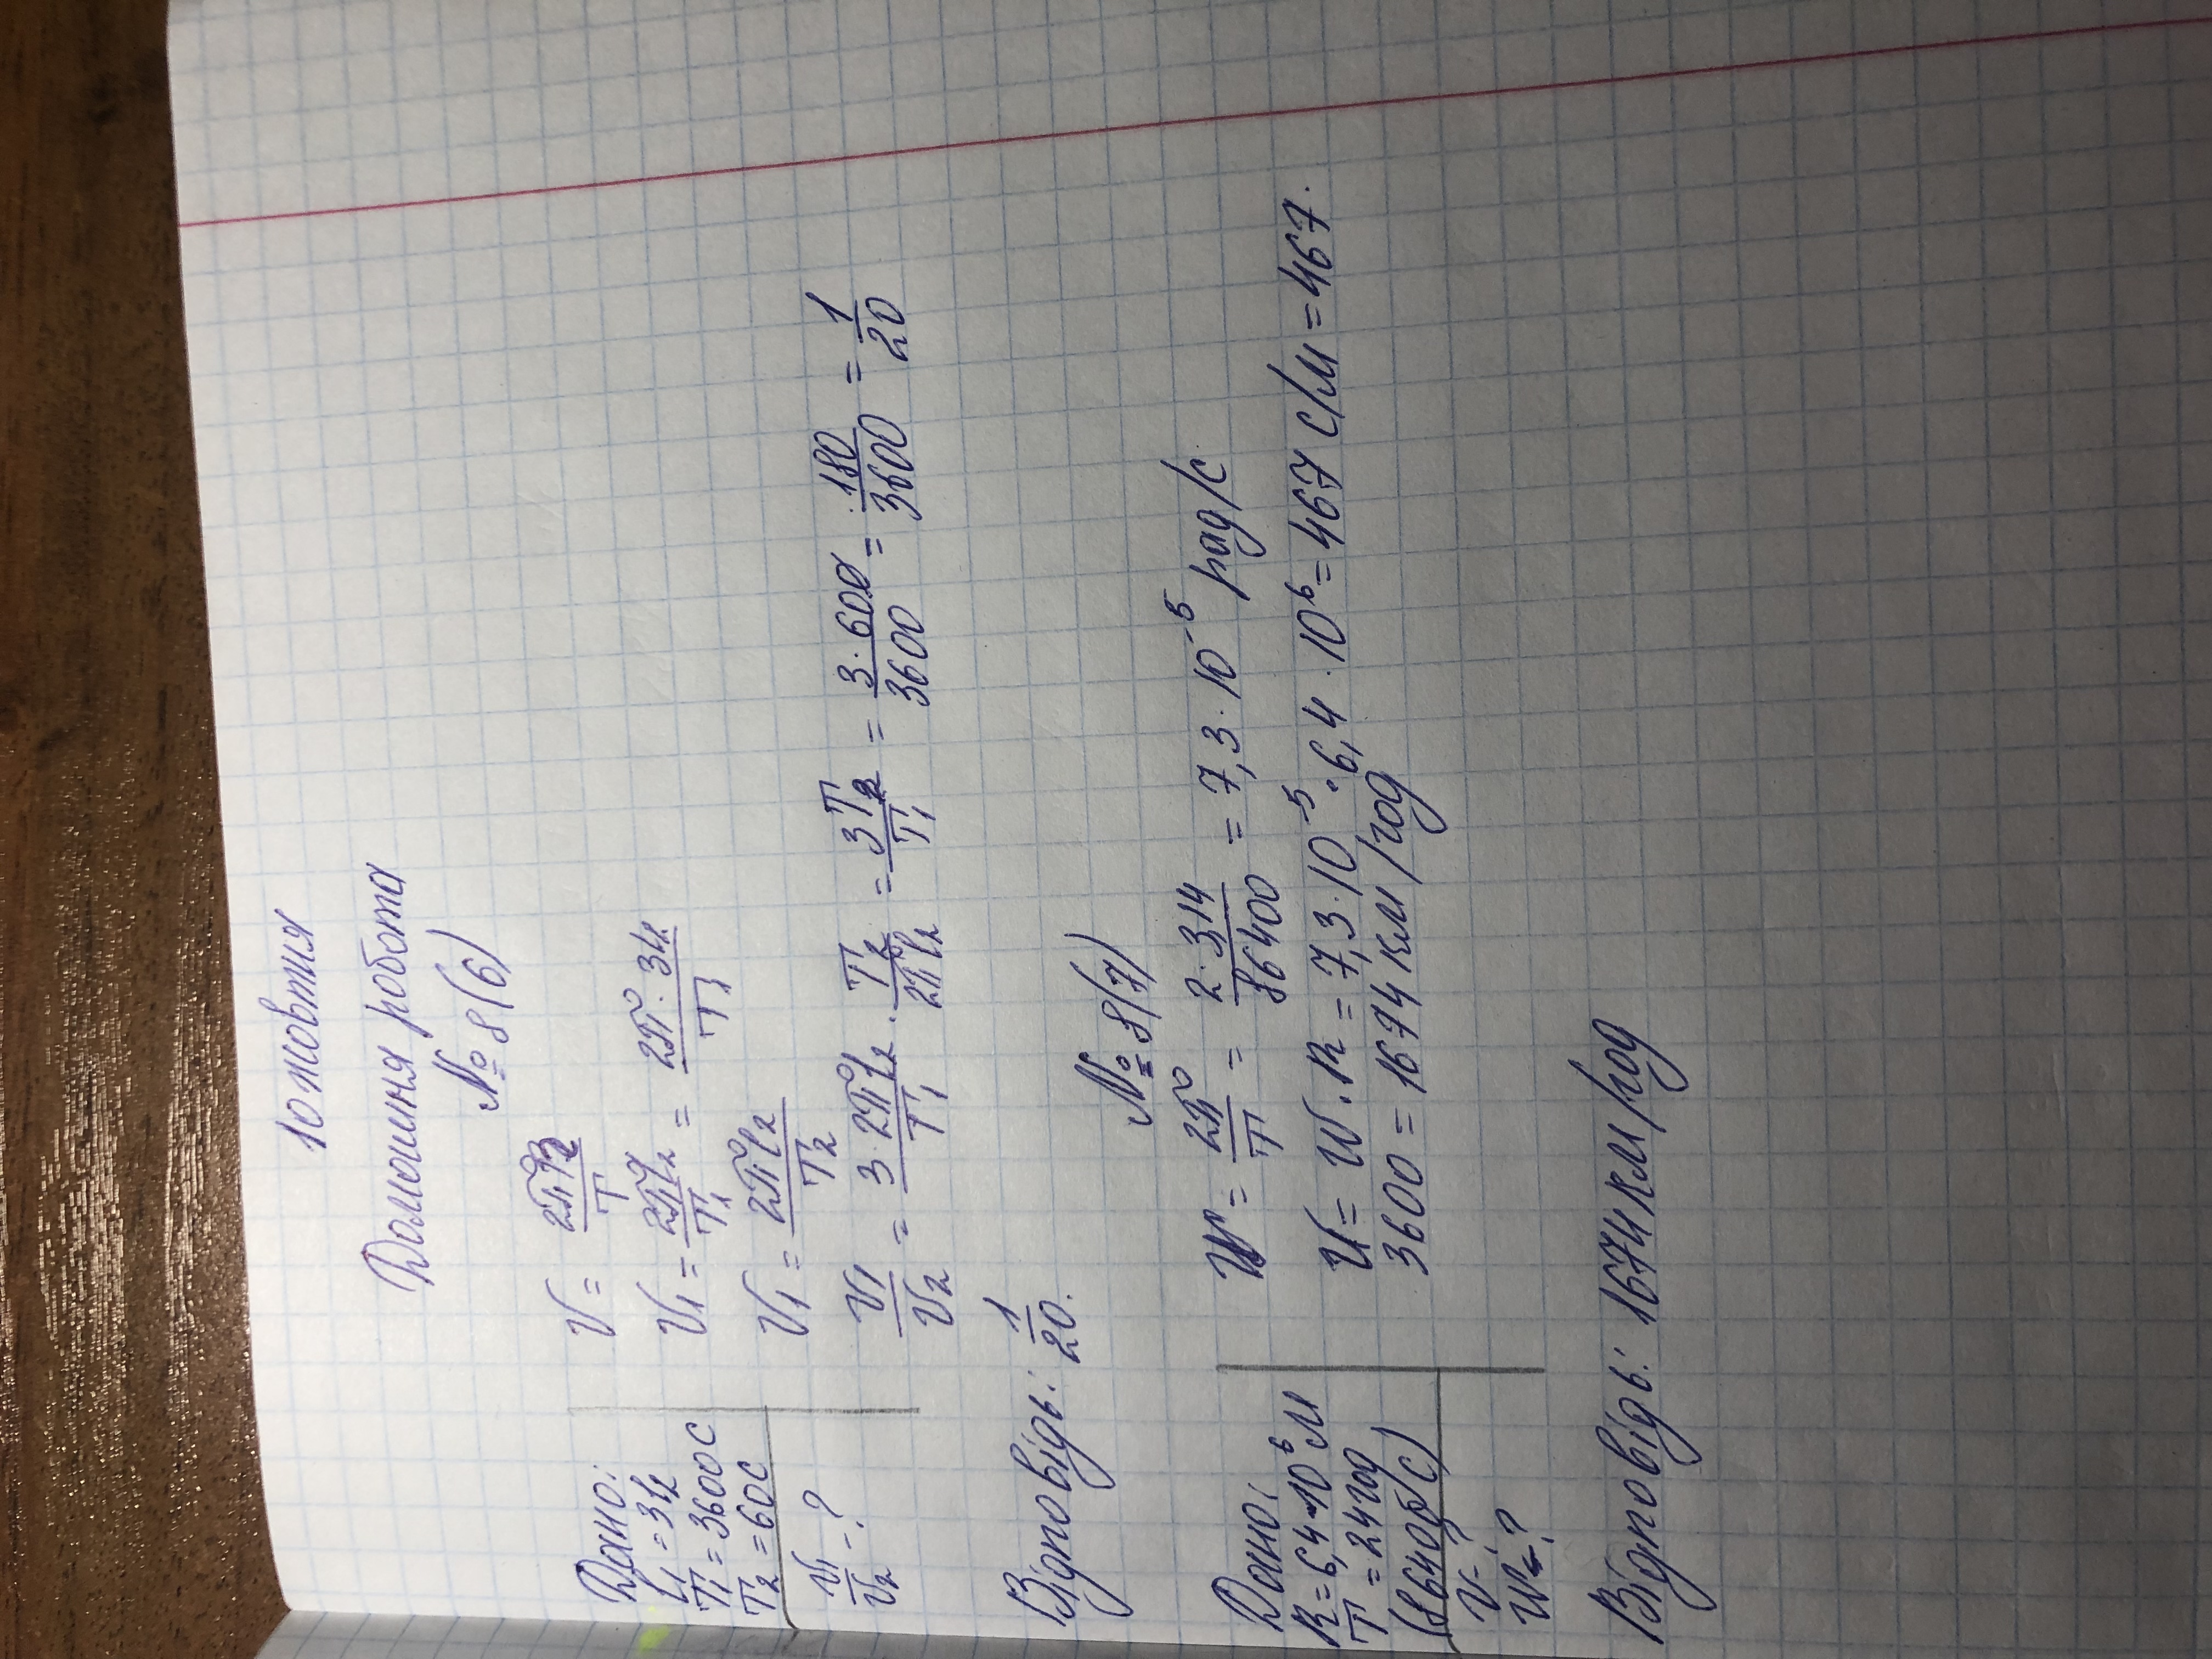 10 жовтня
Домашня робота
№ 8(6)
Дано:
l₁ = 3l₂
T₁ = 3600 с
T₂ = 60 с
v₁/v₂ - ?
v = 2πR/T
v₁ = 2πl₁/T₁ = 2π · 3l₂/T₁
v₁ = 2πl₂/T₂
v₁/v₂ = 3 · 2πl₂/T₁ · T₂/2πl₂ = 3T₂/T₁ = 3 · 60/3600 = 180/3600 = 1/20
Відповідь: 1/20.
№ 8(7)
Дано:
R = 6,4 · 10⁶ м
T = 24 год
(86400 с)
v - ?
w - ?
w = 2π/T = 2 · 3,14/86400 = 7,3 · 10⁻⁵ рад/с
v = w · R = 7,3 · 10⁻⁵ · 6,4 · 10⁶ = 467 с/м = 467 ·
3600 = 1674 км/год
Відповідь: 1674 км/год